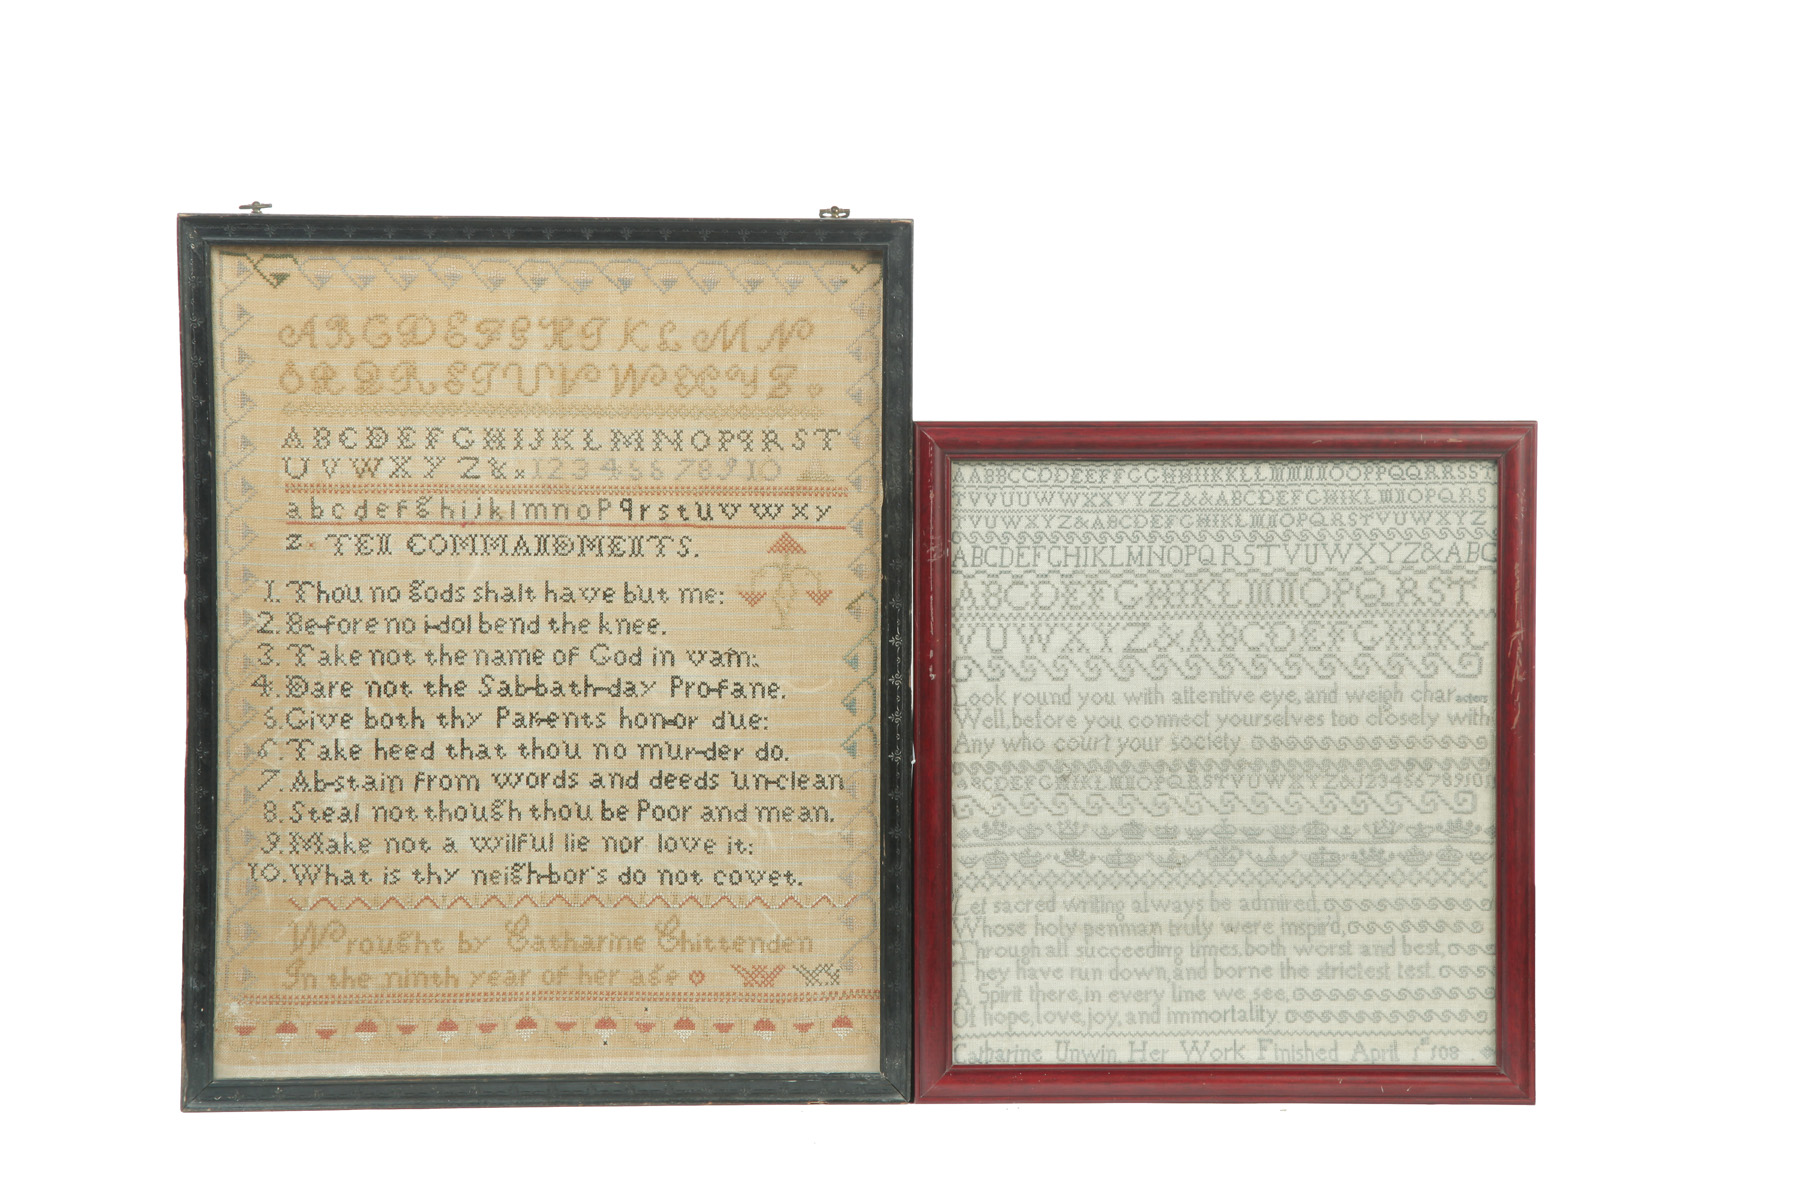 A B C D E F G H I K L M N
O P Q R S T U V W X Y Z
A B C D E F G H I J K L M N O P q R S T
U V W X Y Z & x 1 2 3 4 5 6 7 8 9 10
a b c d e f g h i j k l m n o p q r s t u v w x y
z x TEN COMMANDMENTS.
1. Thou no gods shalt have but me:
2. Be-fore no i-dol bend the knee.
3. Take not the name of God in vain:
4. Dare not the Sab-bath-day Pro-fane.
5. Give both thy Par-ents hon-or due:
6. Take heed that thou no mur-der do.
7. Ab-stain from words and deeds un-clean
8. Steal not though thou be Poor and mean.
9. Make not a wilful lie nor love it:
10. What is thy neigh-bor's do not covet.
Wrought by Catharine Chittenden
In the ninth year of her age
AABBCCDDEEFFGGHHIIKKLLMMNNOOPPQQRRSST
TVVUUWWXXYYZZ&&ABCDEFGHIKLMNOPQRS
TVUWXYZ&ABCDEFGHIKLMNOPQRSTVUWXYZ
ABCDEFGHIKLMNOPQRSTVUWXYZ&ABC
ABCDEFGHIKLMNOPQRST
VUWXYZ&ABCDEFGHIKL
Look round you with attentive eye, and weigh characters
Well, before you connect yourselves too closely with
Any who court your society
ABCDEFGHIKLMNOPQRSTVUWXYZ&12345678910
Let sacred writing always be admired,
Whose holy penman truly were inspir'd,
Through all succeeding times, both worst and best,
They have run down, and borne the strictest test.
A Spirit there, in every line we see,
Of hope, love, joy, and immortality
Catharine Unwin Her Work Finished April 1st